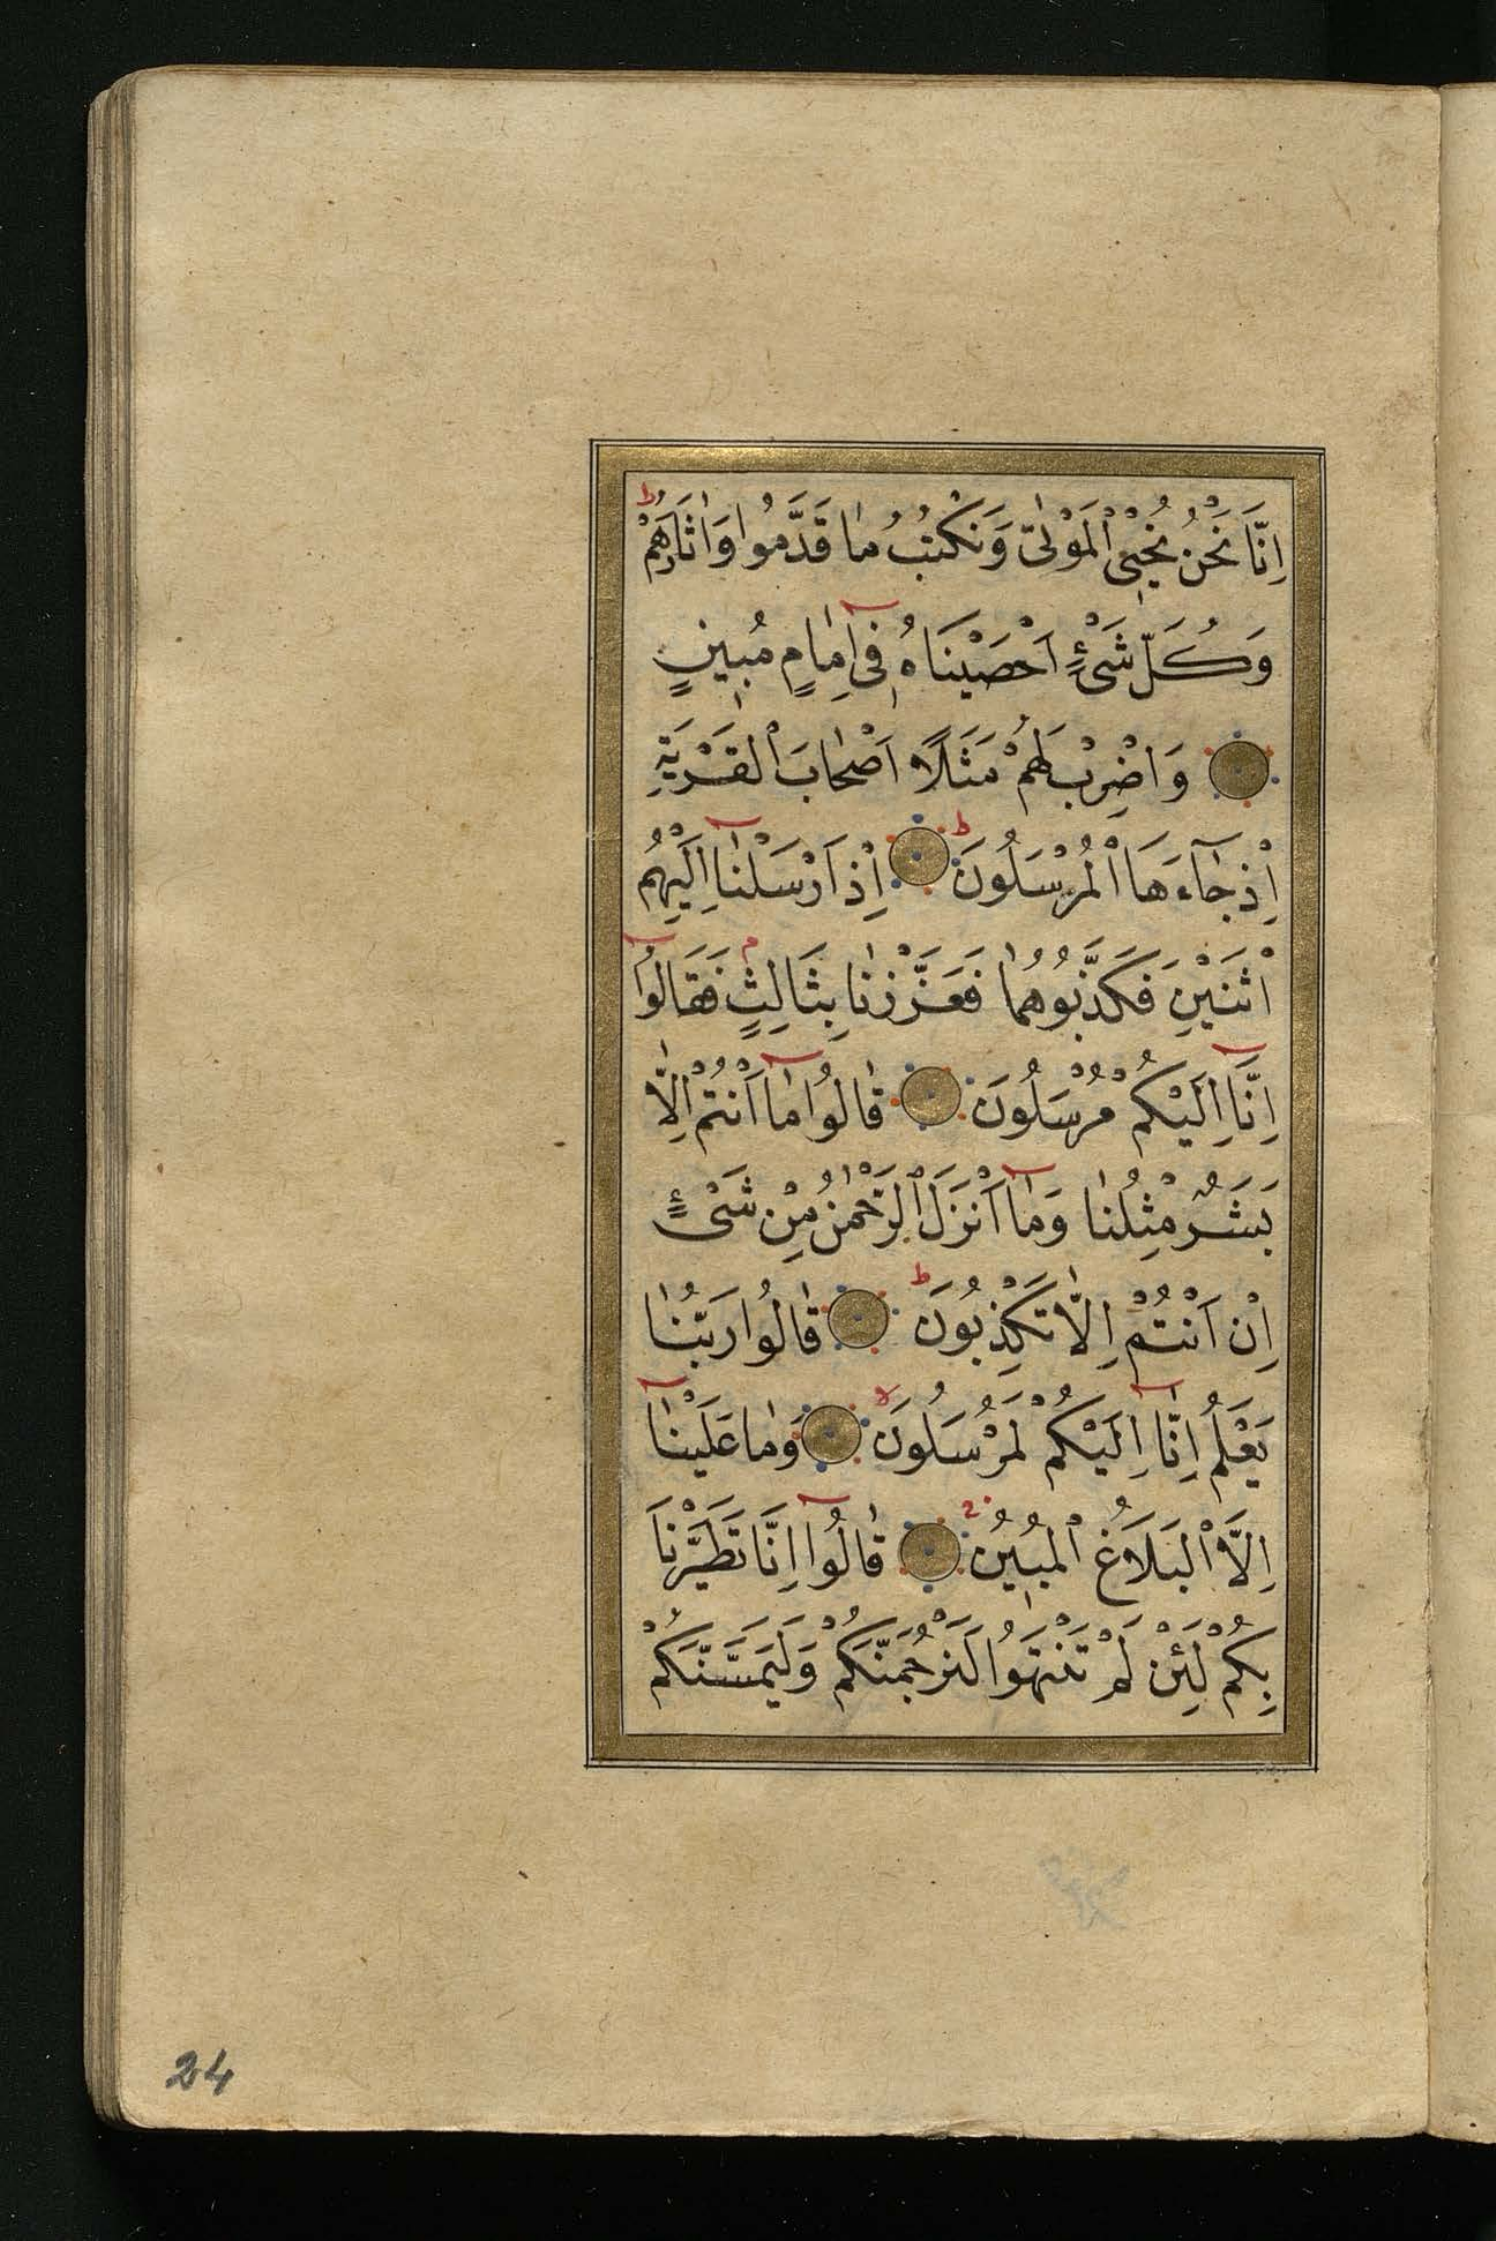 اِنَّا نَحْنُ نُحْيِي الْمَوْتٰى وَنَكْتُبُ مٰا قَدَّمُوا وَاٰثَارَهُمْ ط
وَكُلَّ شَيْءٍ اَحْصَيْنَاهُ فِىٓ اِمٰامٍ مُبٖينٍ
وَاضْرِبْ لَهُمْ مَثَلًا اَصْحٰابَ الْقَرْيَةِ
اِذْ جٰٓاءَهَا الْمُرْسَلُونَ ط اِذْ اَرْسَلْنٰٓا اِلَيْهِمُ
اثْنَيْنِ فَكَذَّبُوهُمٰا فَعَزَّزْنٰا بِثَالِثٍ م فَقَالُوٓا
اِنَّٓا اِلَيْكُمْ مُرْسَلُونَ قٰالُوا مٰٓا اَنْتُمْ اِلّٰا
بَشَرٌ مِثْلُنٰا وَمٰٓا اَنْزَلَ الرَّحْمٰنُ مِنْ شَيْءٍ
اِنْ اَنْتُمْ اِلّٰا تَكْذِبُونَ ط قٰالُوا رَبُّنٰا
يَعْلَمُ اِنّٰٓا اِلَيْكُمْ لَمُرْسَلُونَ لا وَمٰا عَلَيْنٰٓا
اِلَّا الْبَلَاغُ الْمُبٖينُ قٰالُوٓا اِنَّا تَطَيَّرْنَا
بِكُمْ لَئِنْ لَمْ تَنْتَهُوا لَنَرْجُمَنَّكُمْ وَلَيَمَسَّنَّكُمْ
24